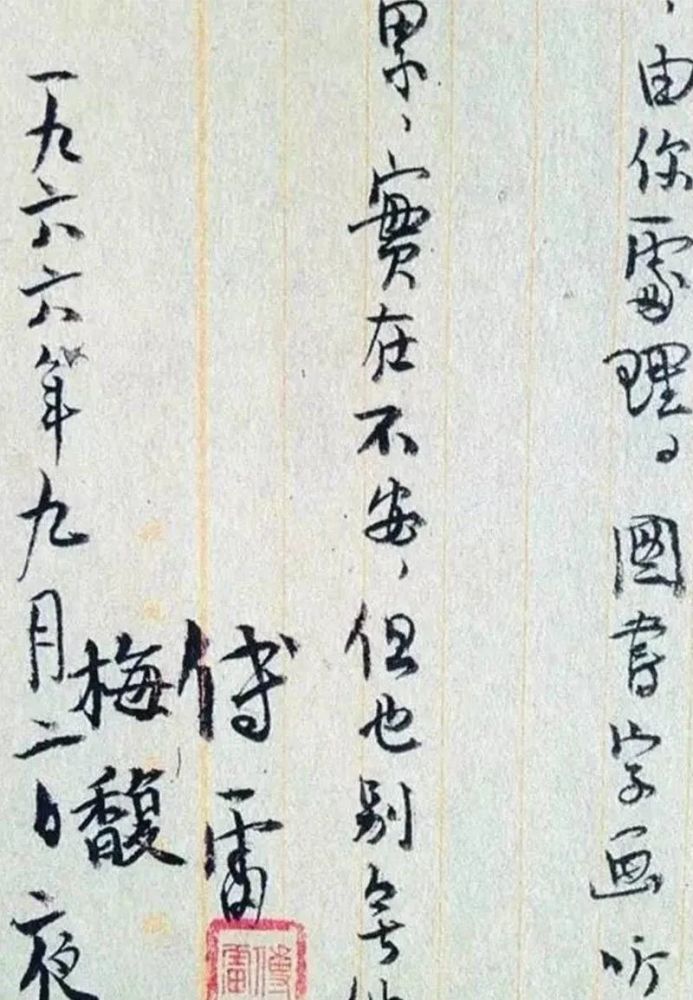 ，由你處理。圖書字画听
累，實在不安，但也别無
傅雷
梅馥
一九六六年九月二日夜
傅雷